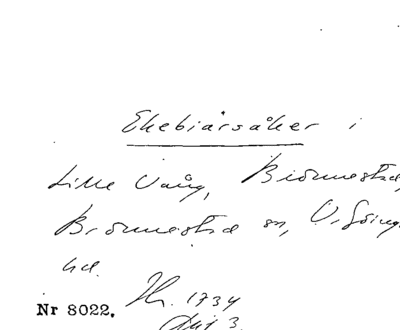 Ekebiärsåker i
Lille Vång, Biörnestad,
Brönnestad sn, V. Göinge
hd.
Nr 8022. Hk. 1734
Akt 3